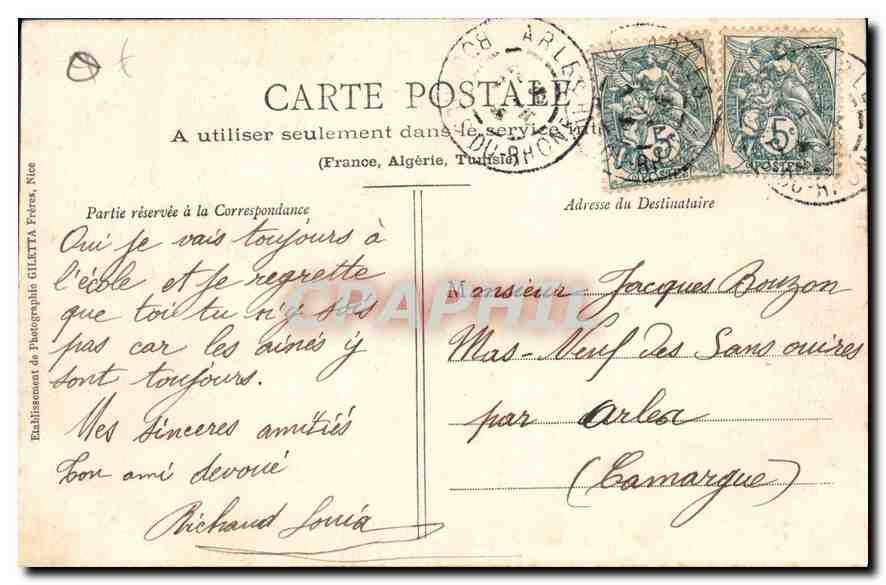 CARTE POSTALE
A utiliser seulement dans le service
(France, Algérie, Tunisie)
ARLES
DU-RHONE
5
POSTES
5
POSTES
Partie réservée à la Correspondance
Oui je vais toujours à
l'école et je regrette
que toi tu n'y sois
pas car les ainés y
sont toujours.
Mes sinceres amitiés
Ton ami devoué
Richaud Louis
Adresse du Destinataire
Monsieur Jacques Bouzon
Mas-Neuf des Sans ouires
par Arles
(Camargue)
Etablissement de Photographie GILETTA Frères, Nice
CPAPHIL